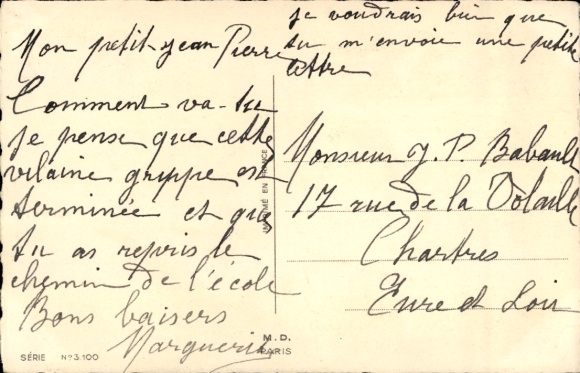 Mon petit Jean Pierre
Comment va-tu
je pense que cette
vilaine grippe est
terminée et que
tu as repris le
chemin de l'école
Bons baisers
Marguerite
je voudrais bien que
tu m'envoie une petite
lettre
Monsieur J. P. Babault
17 rue de la Volaille
Chartres
Eure et Loir
IMPRIMÉ EN FRANCE
M.D.
PARIS
SÉRIE N° 3.100